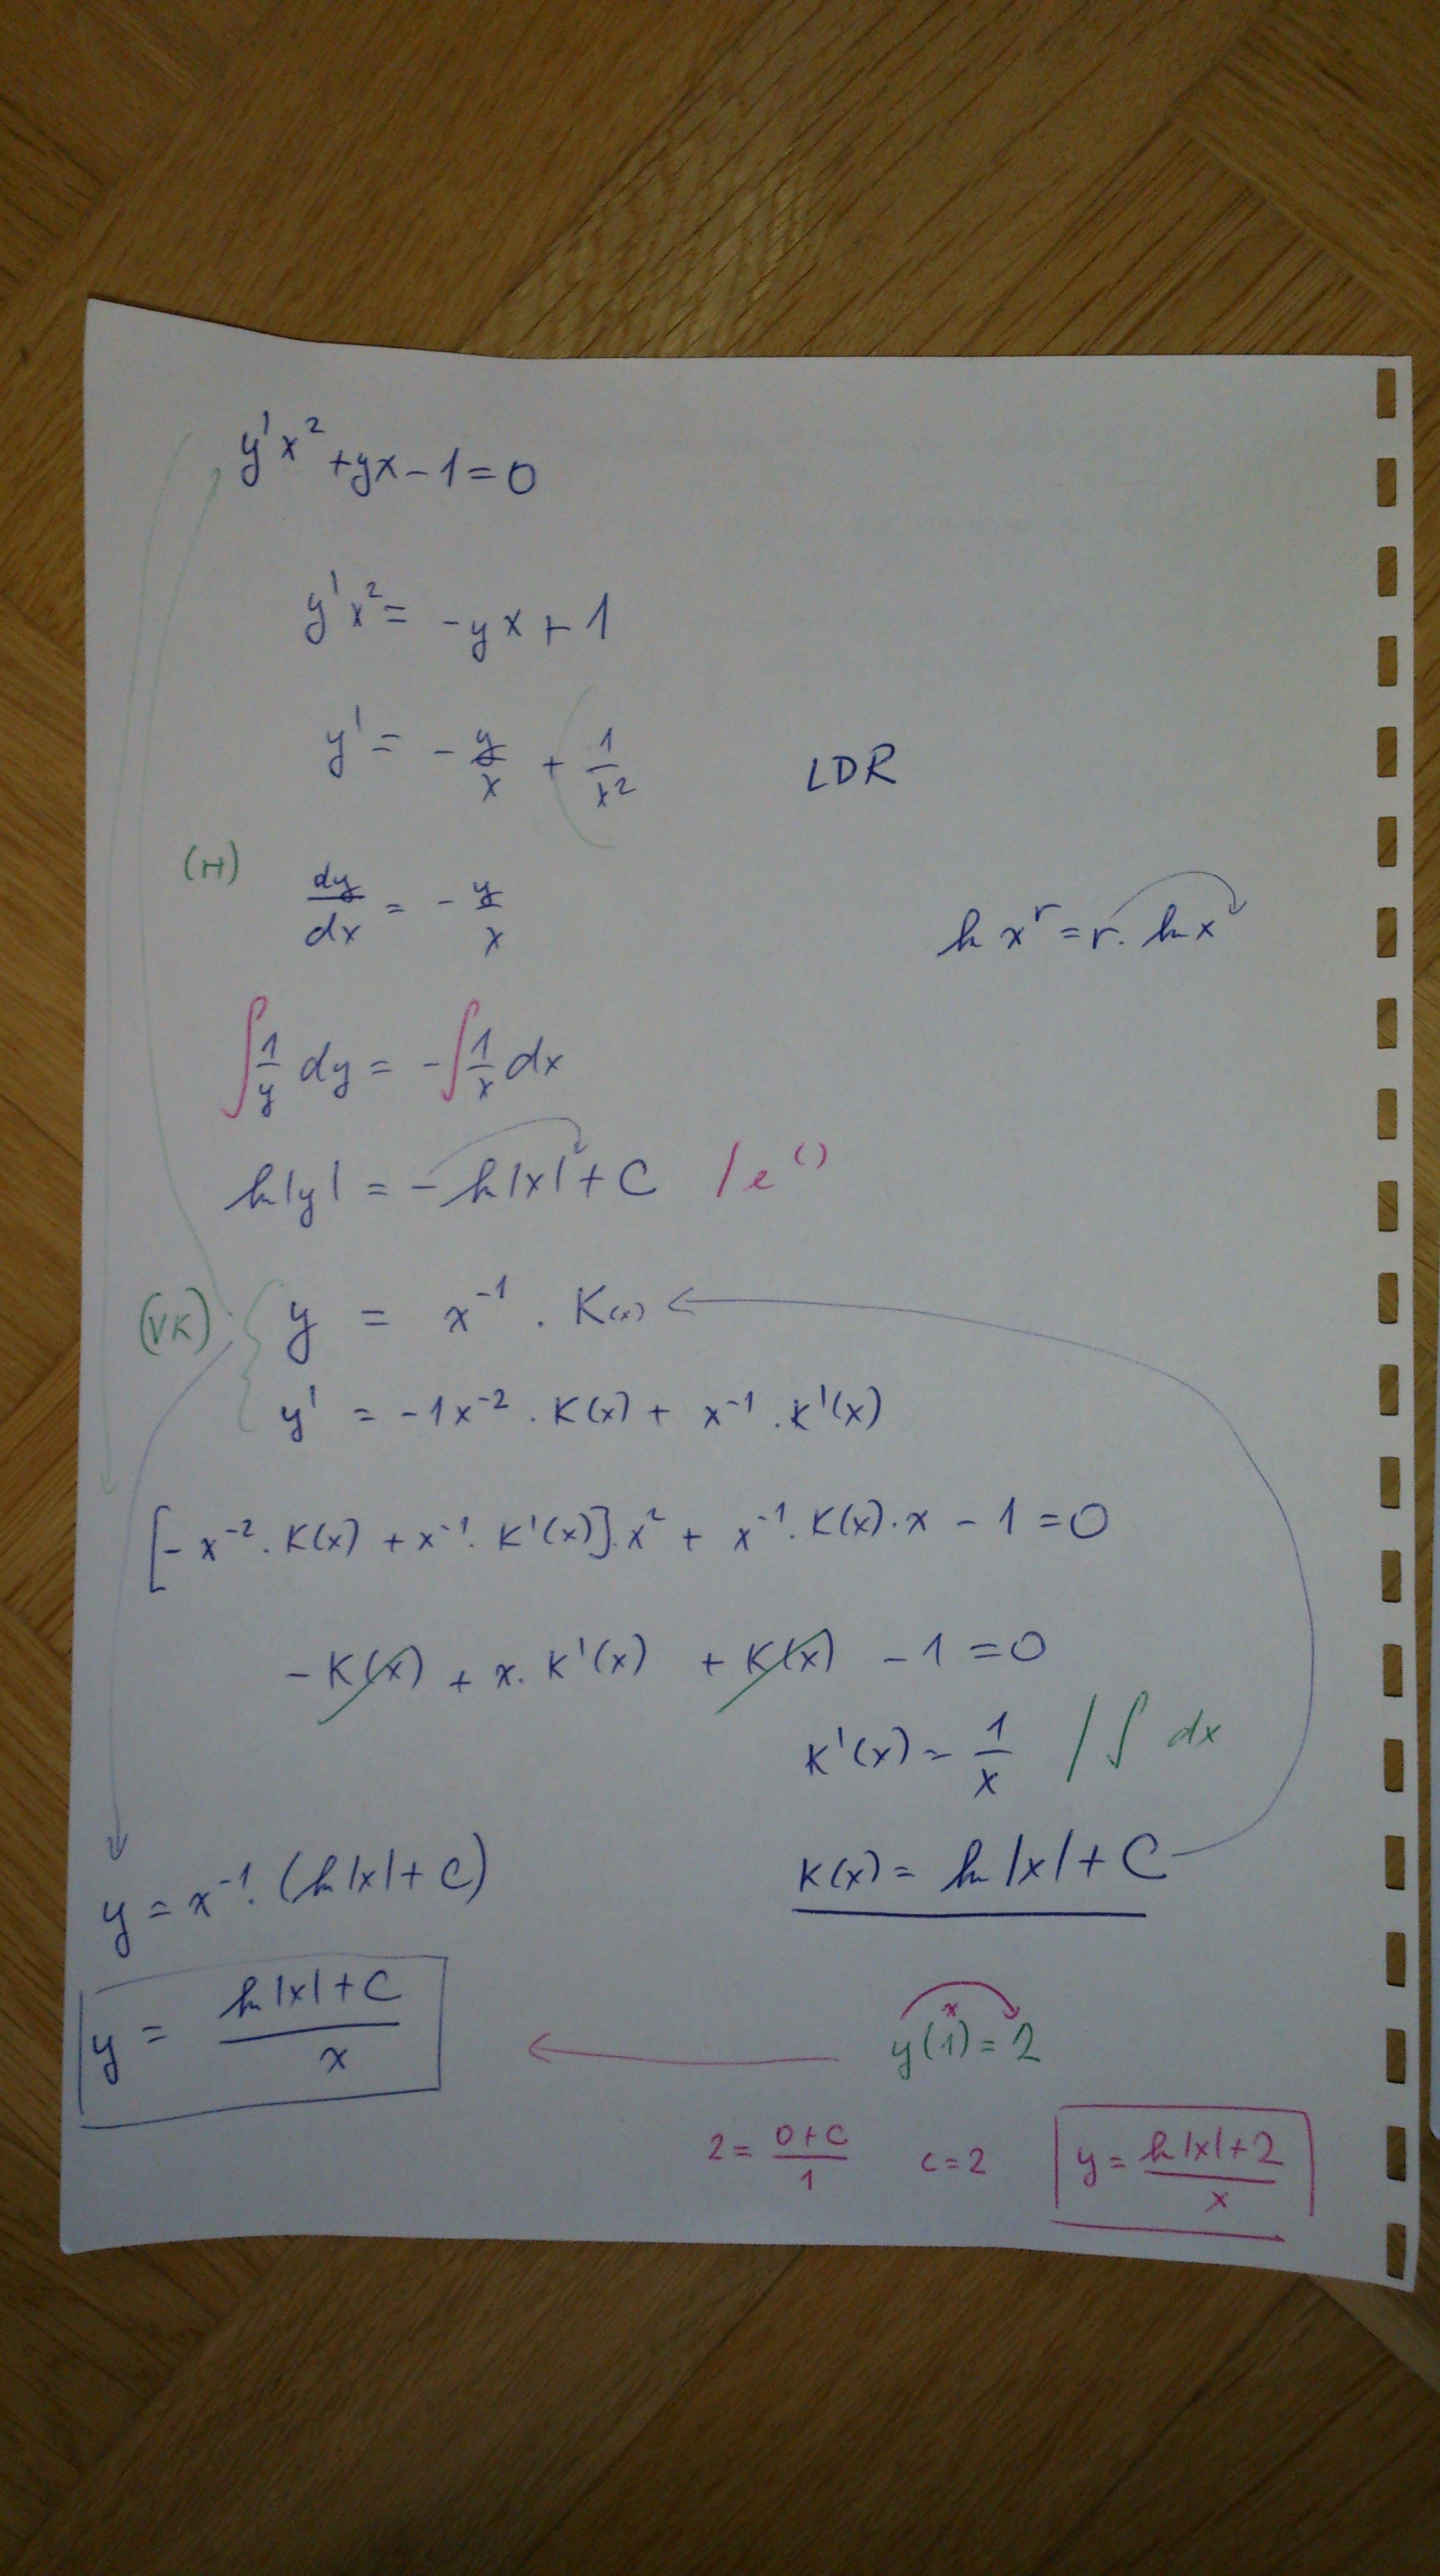 y'x² + yx - 1 = 0
y'x² = -yx + 1
y' = -y/x + 1/x² LDR
(H)
dy/dx = -y/x ln xʳ = r · ln x
∫ 1/y dy = -∫ 1/x dx
ln|y| = -ln|x| + C / e^( )
(VK) y = x⁻¹ · K(x)
y' = -1x⁻² · K(x) + x⁻¹ · K'(x)
[-x⁻² · K(x) + x⁻¹ · K'(x)] · x² + x⁻¹ · K(x) · x - 1 = 0
-K(x) + x · K'(x) + K(x) - 1 = 0
K'(x) = 1/x / ∫ dx
y = x⁻¹ · (ln|x| + C) K(x) = ln|x| + C
y = (ln|x| + C)/x y(1) = 2
x
2 = (0 + C)/1 C = 2 y = (ln|x| + 2)/x